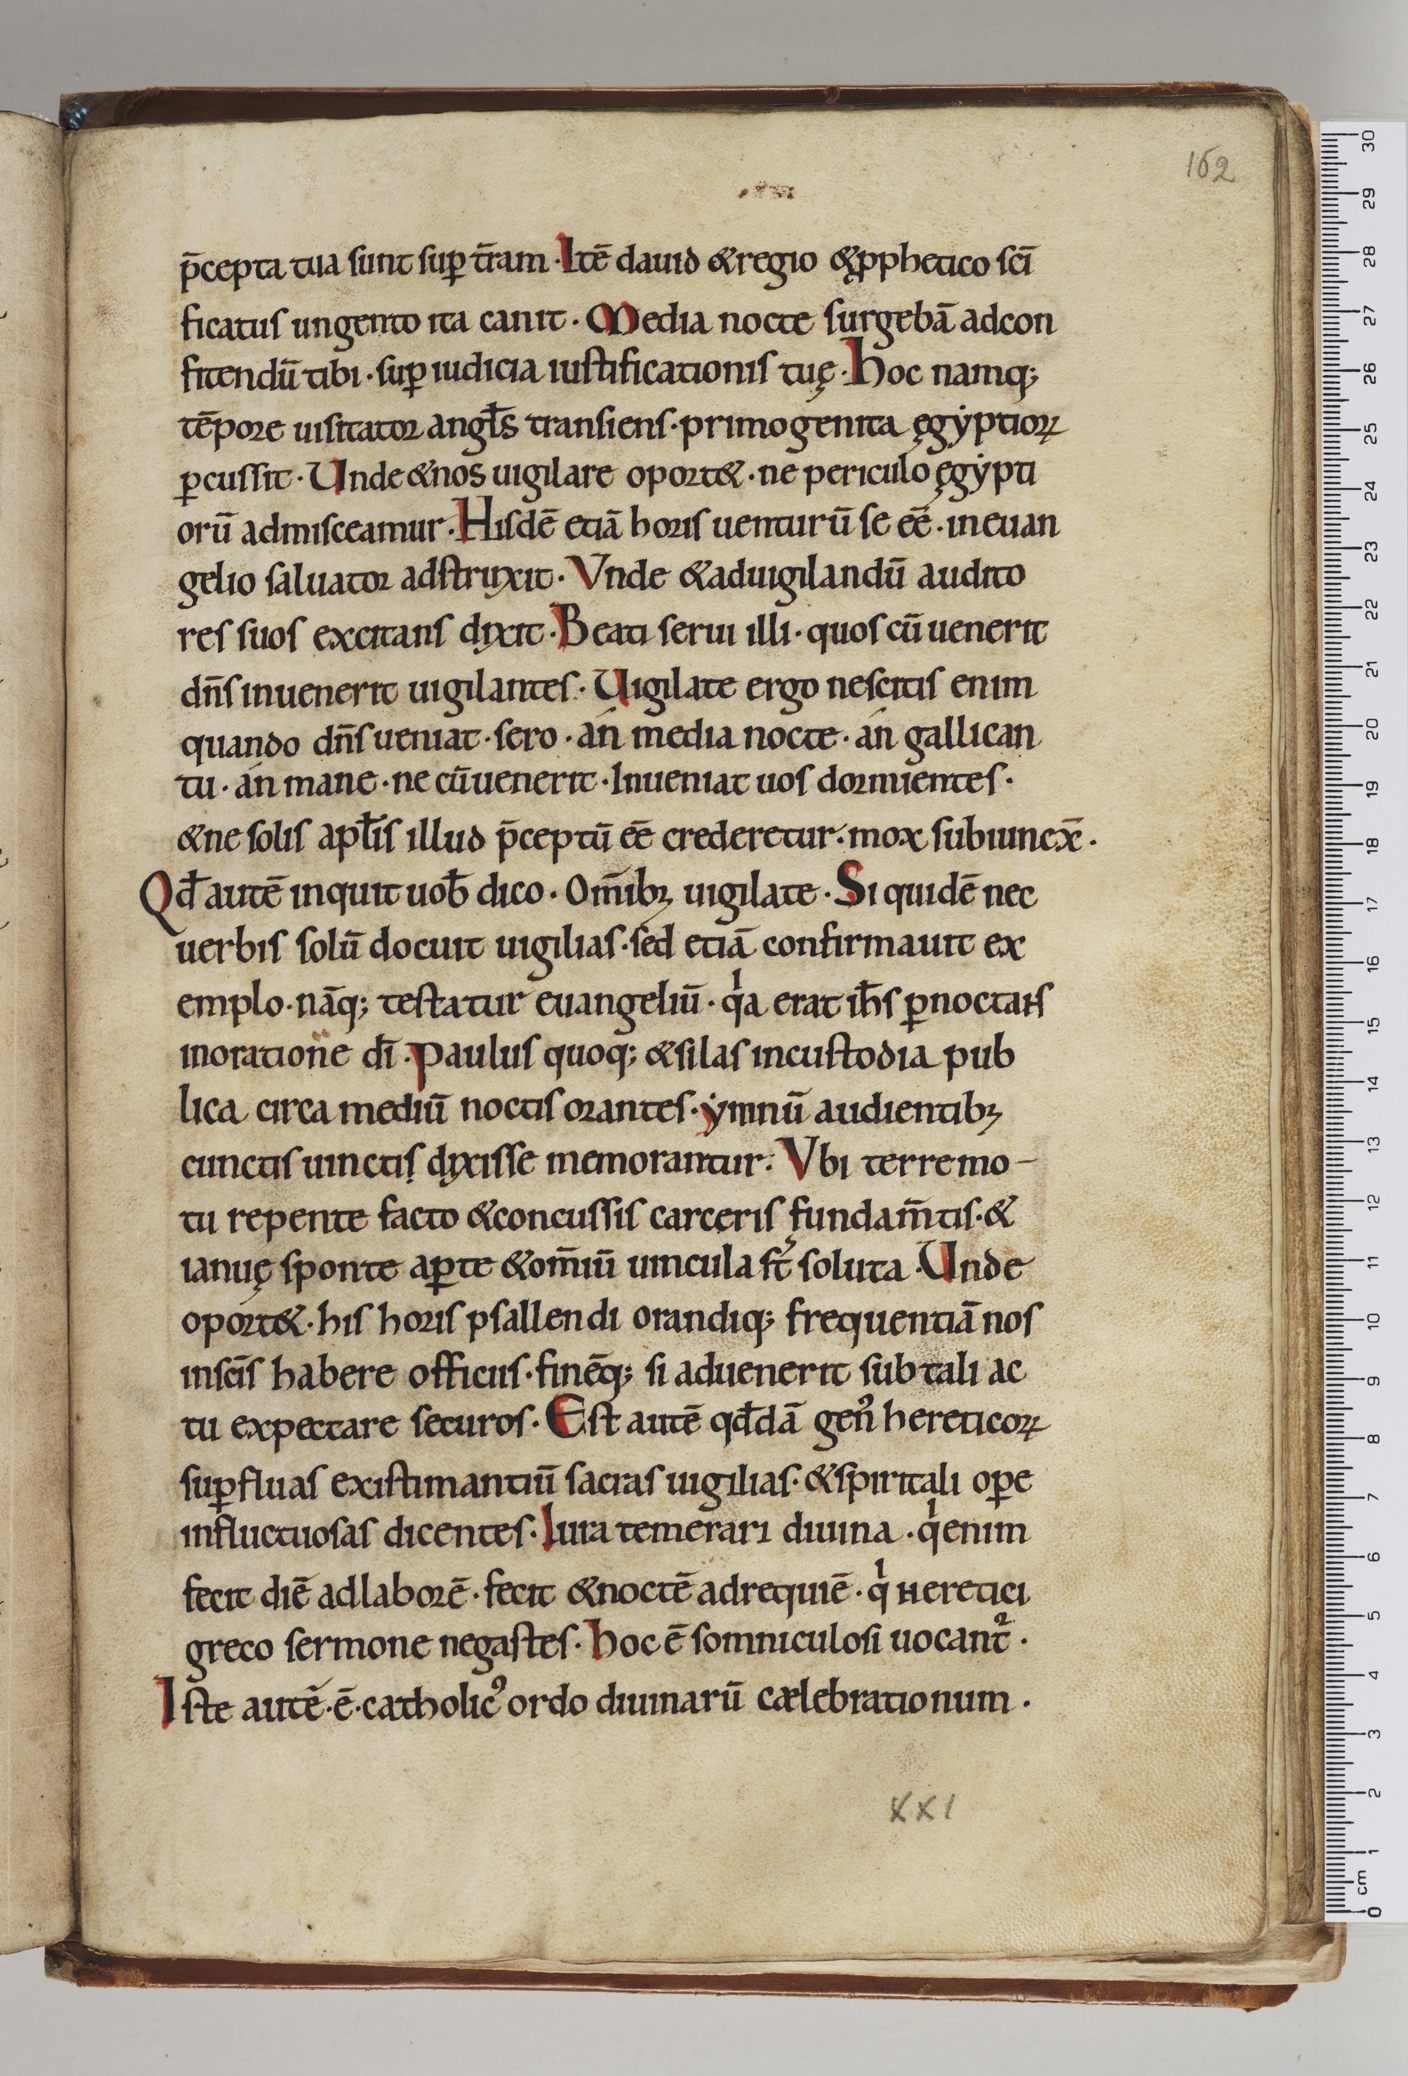 162
p̄cepta tua sunt suꝑ t̄ram · Itē dauid & regio & ꝓphetico scī
ficatus ungento ita canit · Media nocte surgebā adcon
fitendū tibi · suꝑ iudicia iustificationis tuę · Hoc namq;
tēpore uisitator angl̄s transiens · primogenita ęgẏptioꝝ
ꝑcussit · Unde & nos uigilare oport& · ne periculo ęgẏpti
orū admisceamur · Hisdē etiā horis uenturū se eē · in euan
gelio saluator adstrinxit · Vnde & aduigilandū audito
res suos excitans dixit · Beati serui illi · quos cū uenerit
dn̄s inuenerit uigilantes · Uigilate ergo nescitis enim
quando dn̄s ueniat · sero · án media nocte · án gallican
tu · án mane · ne cū uenerit · Inueniat uos dormientes ·
& ne solis apl̄is illud p̄ceptū eē crederetur · mox subiunex̄ ·
Qđ autē inquit uob̄ dico · Om̄ibꝫ uigilate · Si quidē nec
uerbis solū docuit uigilias · sed etiā confirmauit ex
emplo · nāq; testatur euangeliū · qͥa erat ih̄s ꝑnoctans
inoratione dī · Paulus quoq; & silas incustodia pub
lica circa mediū noctis orantes · ẏmnū audientibꝫ
cunctis uinctis dixisse memorantur · Vbi terremo-
tu repente facto & concussis carceris fundam̄tis · &
ianuę sponte aꝑte & om̄iū uincula st̄ soluta · Unde
oport& · his horis psallendi orandiq; frequentiā nos
inscīs habere officiis · finēq; si aduenerit sub tali ac
tu expectare securos · Est autē qđdā genꝰ hereticoꝝ
suꝑfluas existimantiū sacras uigilias · & spiritali oꝑe
influctuosas dicentes · Iura temerari diuina · qͥ enim
fecit diē adlaborē · fecit & noctē adrequiē · qͥ heretici
greco sermone negastes · Hoc ē somniculosi uocant᷑ ·
Iste autē · ē · catholicꝰ ordo diuinarū cælebrationum ·
XXI